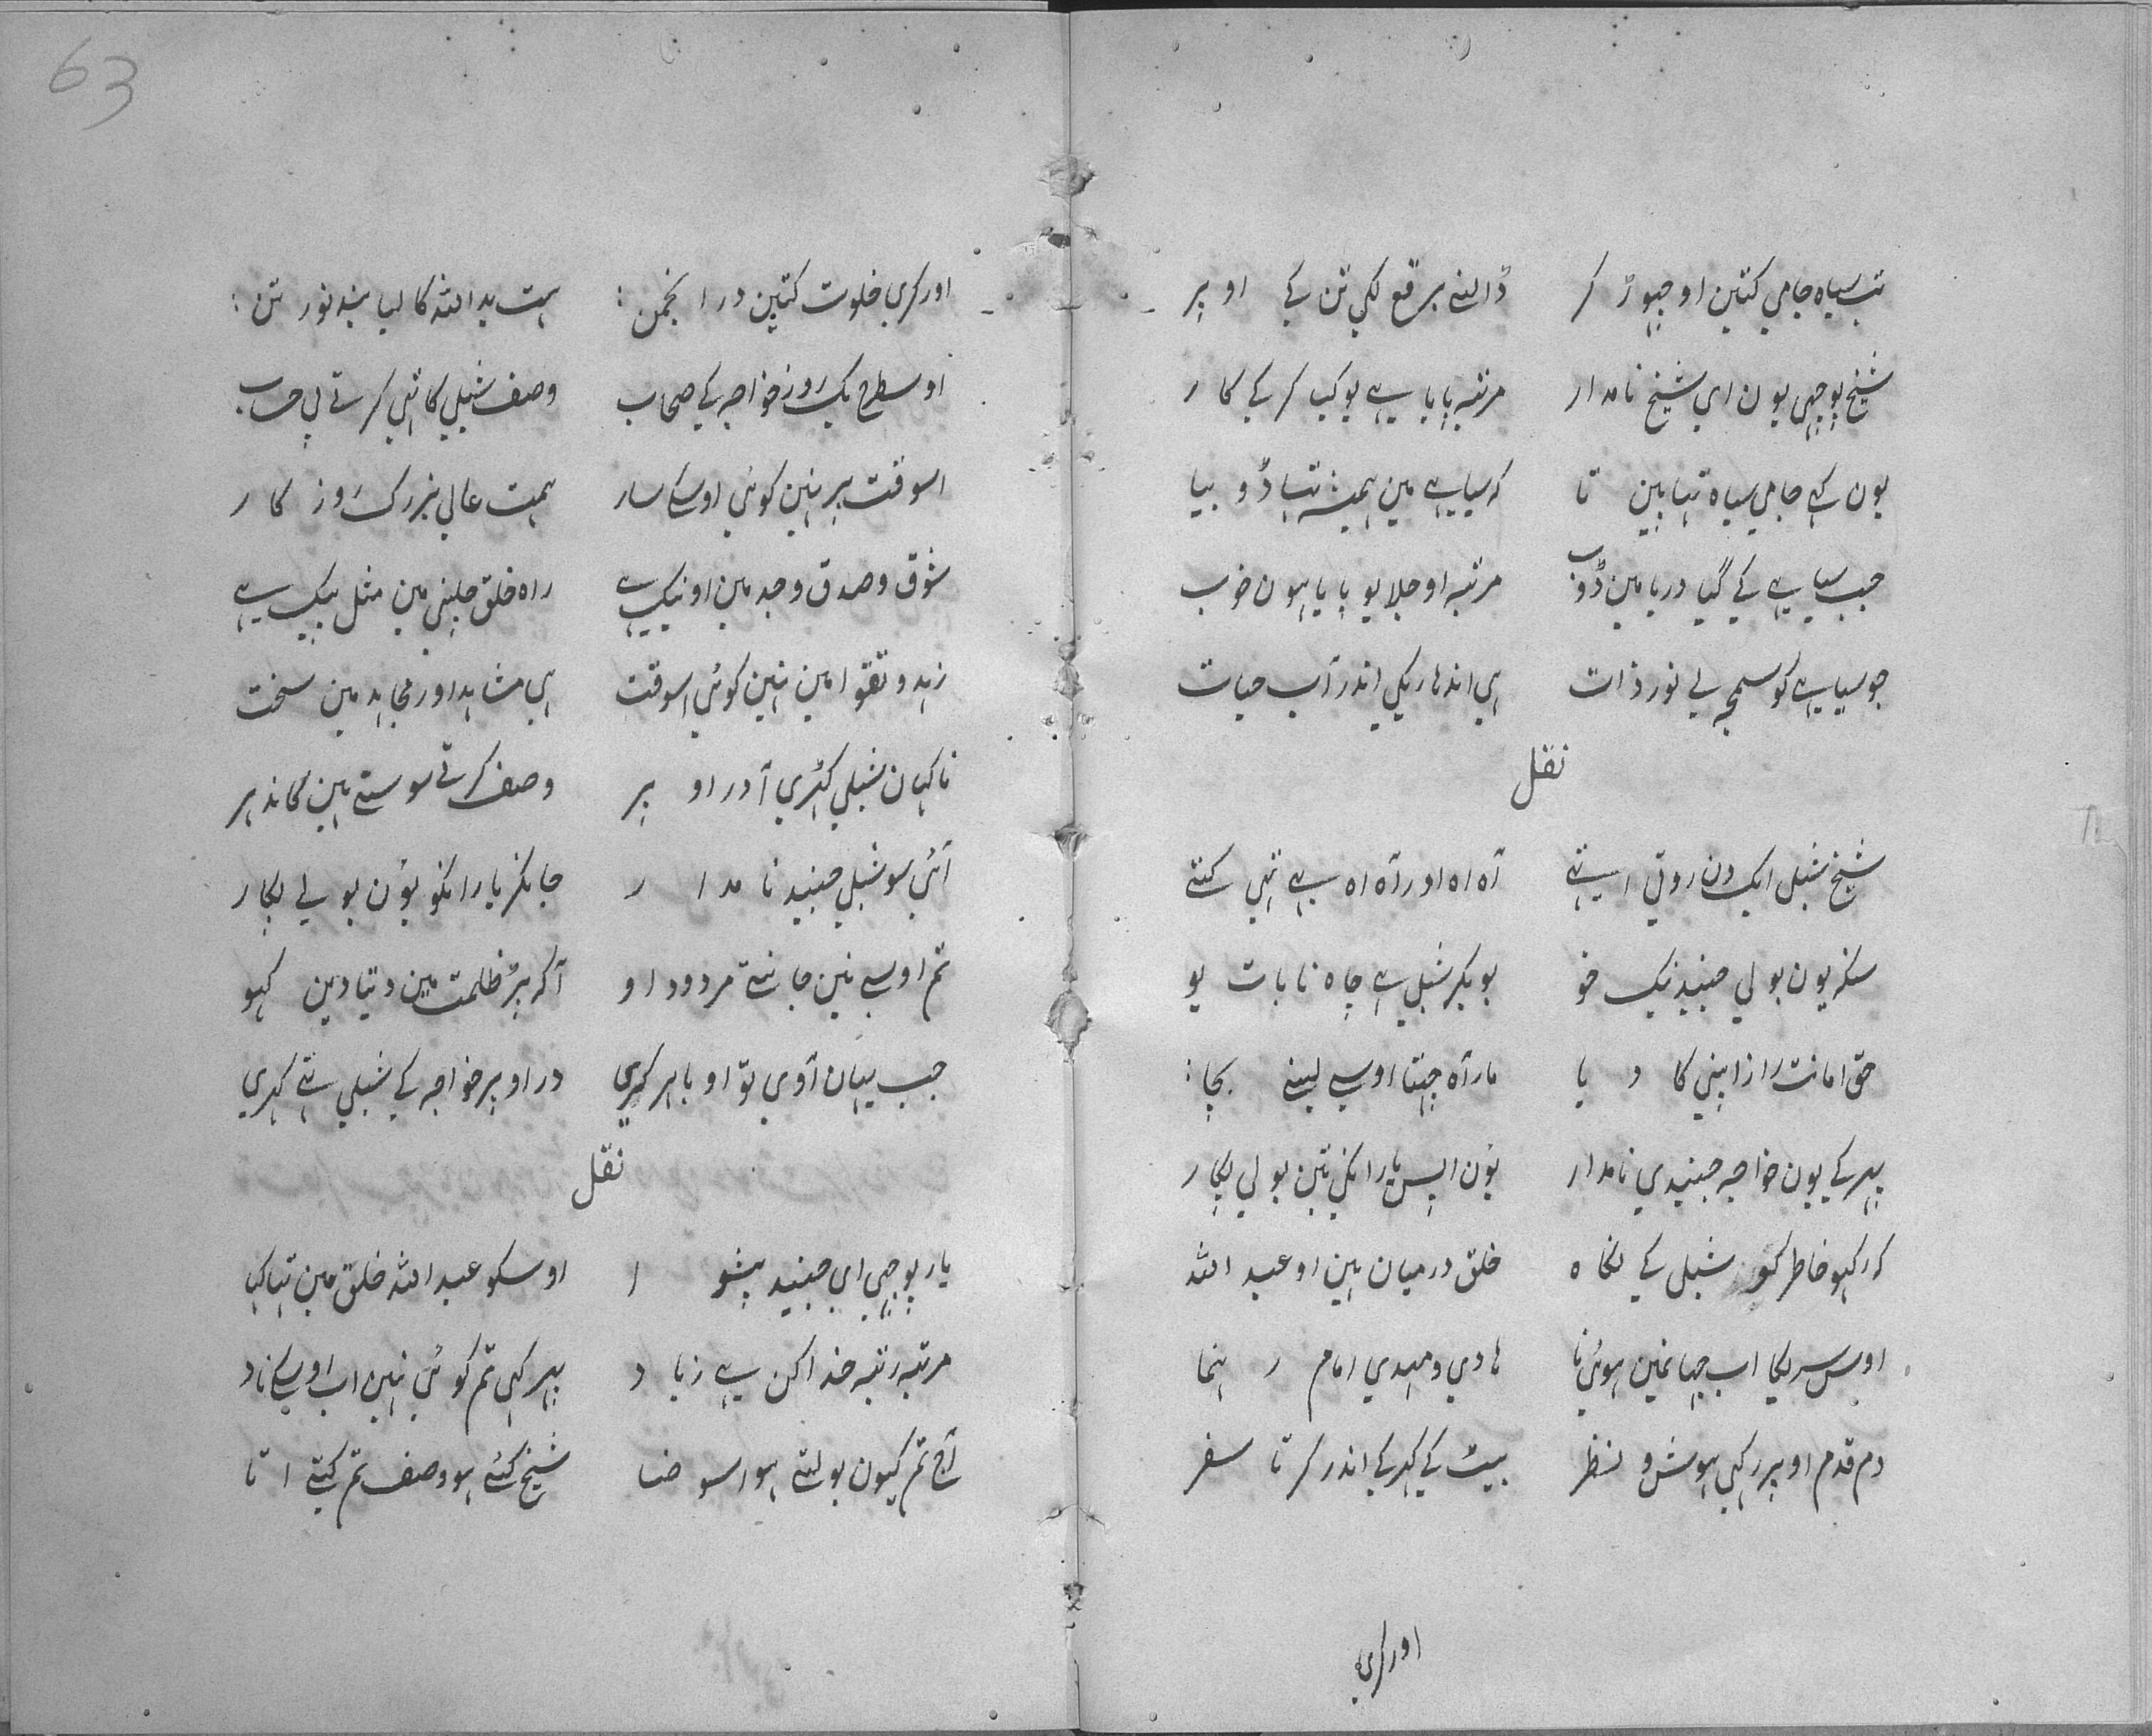 تب سیاه جامي کتین او چهوڑ کر ڈالنے برقع لکی تن کے اوپر
شیخ پوچهي یون اي شیخ نامدار مرتبه پایا ہے یو کیا کر کے کار
یون کہے جامي سیاه تہا ہین تا که سیاہے مین ہمیشه تہا ڈوبیا
جب سیاہے کے گیا دریا مین ڈوب مرتبه اوجلا یو پایا ہون خوب
جو سیاہے کو سمجه لے نور ذات ہي اندهاریکي اندر آب حیات
نقل
شیخ شبلي ایک دن روتي اتہے آه اه اور آه اه ہے تہي کتے
سنکر یون بولي جنید نیک خو بوبکر شبلي ہے چاه نا بات یو
حق امانت راز اپني کا دیا مار آه جیتا اوسے لینے بچا :
پهر کے یون خواجه جنیدي نامدار یون اپس یار انکي تین بولي پکار
که رکهو خاطر کو شبلي کے نگاه خلق درمیان ہین او عبد الله
اوس سریکا اب جہا نمین ہوئي نا هادي و مهدي امام رہنما
دم قدم اوپر رکهي ہوش و نظر بیٹ کے کهر کے اندر کرتا سفر
اور کري
63
اور کري خلوت کتین در انجمن : ہت ید الله کا لیا بند نور تن :
اوسطرح یک روز خواجه کے صحاب وصف شبلي کا تہي کرتے بي حساب
اسوقت پر نہین کوئي اوسکے سار ہمت عالي بزرک روز کار
شوق و صدق و وجد مین او نیک ہے راه خلق چلنے مین مثل پیک ہے
زہد و تقوا مین نہین کوئي اسوقت ہي مشاہد اور مجاہد مین سخت
ناکہان شبلي کهڑي آ در اوپر وصف کرتے سو ستے ہین کاندہر
آئي سو شبلي جنید نامدار جانکر یار انکو یون بولے پکار
تم اوسے نین جانتے مردود او آکه پر ظلمت مین دنیا دین کهو
جب یہان آوي تو او باہر کهري در اوپر خواجه کے شبلي تہے کهري
نقل
یار پوچهي اي جنید پیشوا اوسکو عبد الله خلق مین تہا کہا
مرتبه رتبه خدا کن ہے زیاد پهر کہي تم کوئي نہین اب اوسکے ناد
آج تم کیون بولتے ہو اسو ضا شیخ کئے ہو وصف تم کیتے اتا